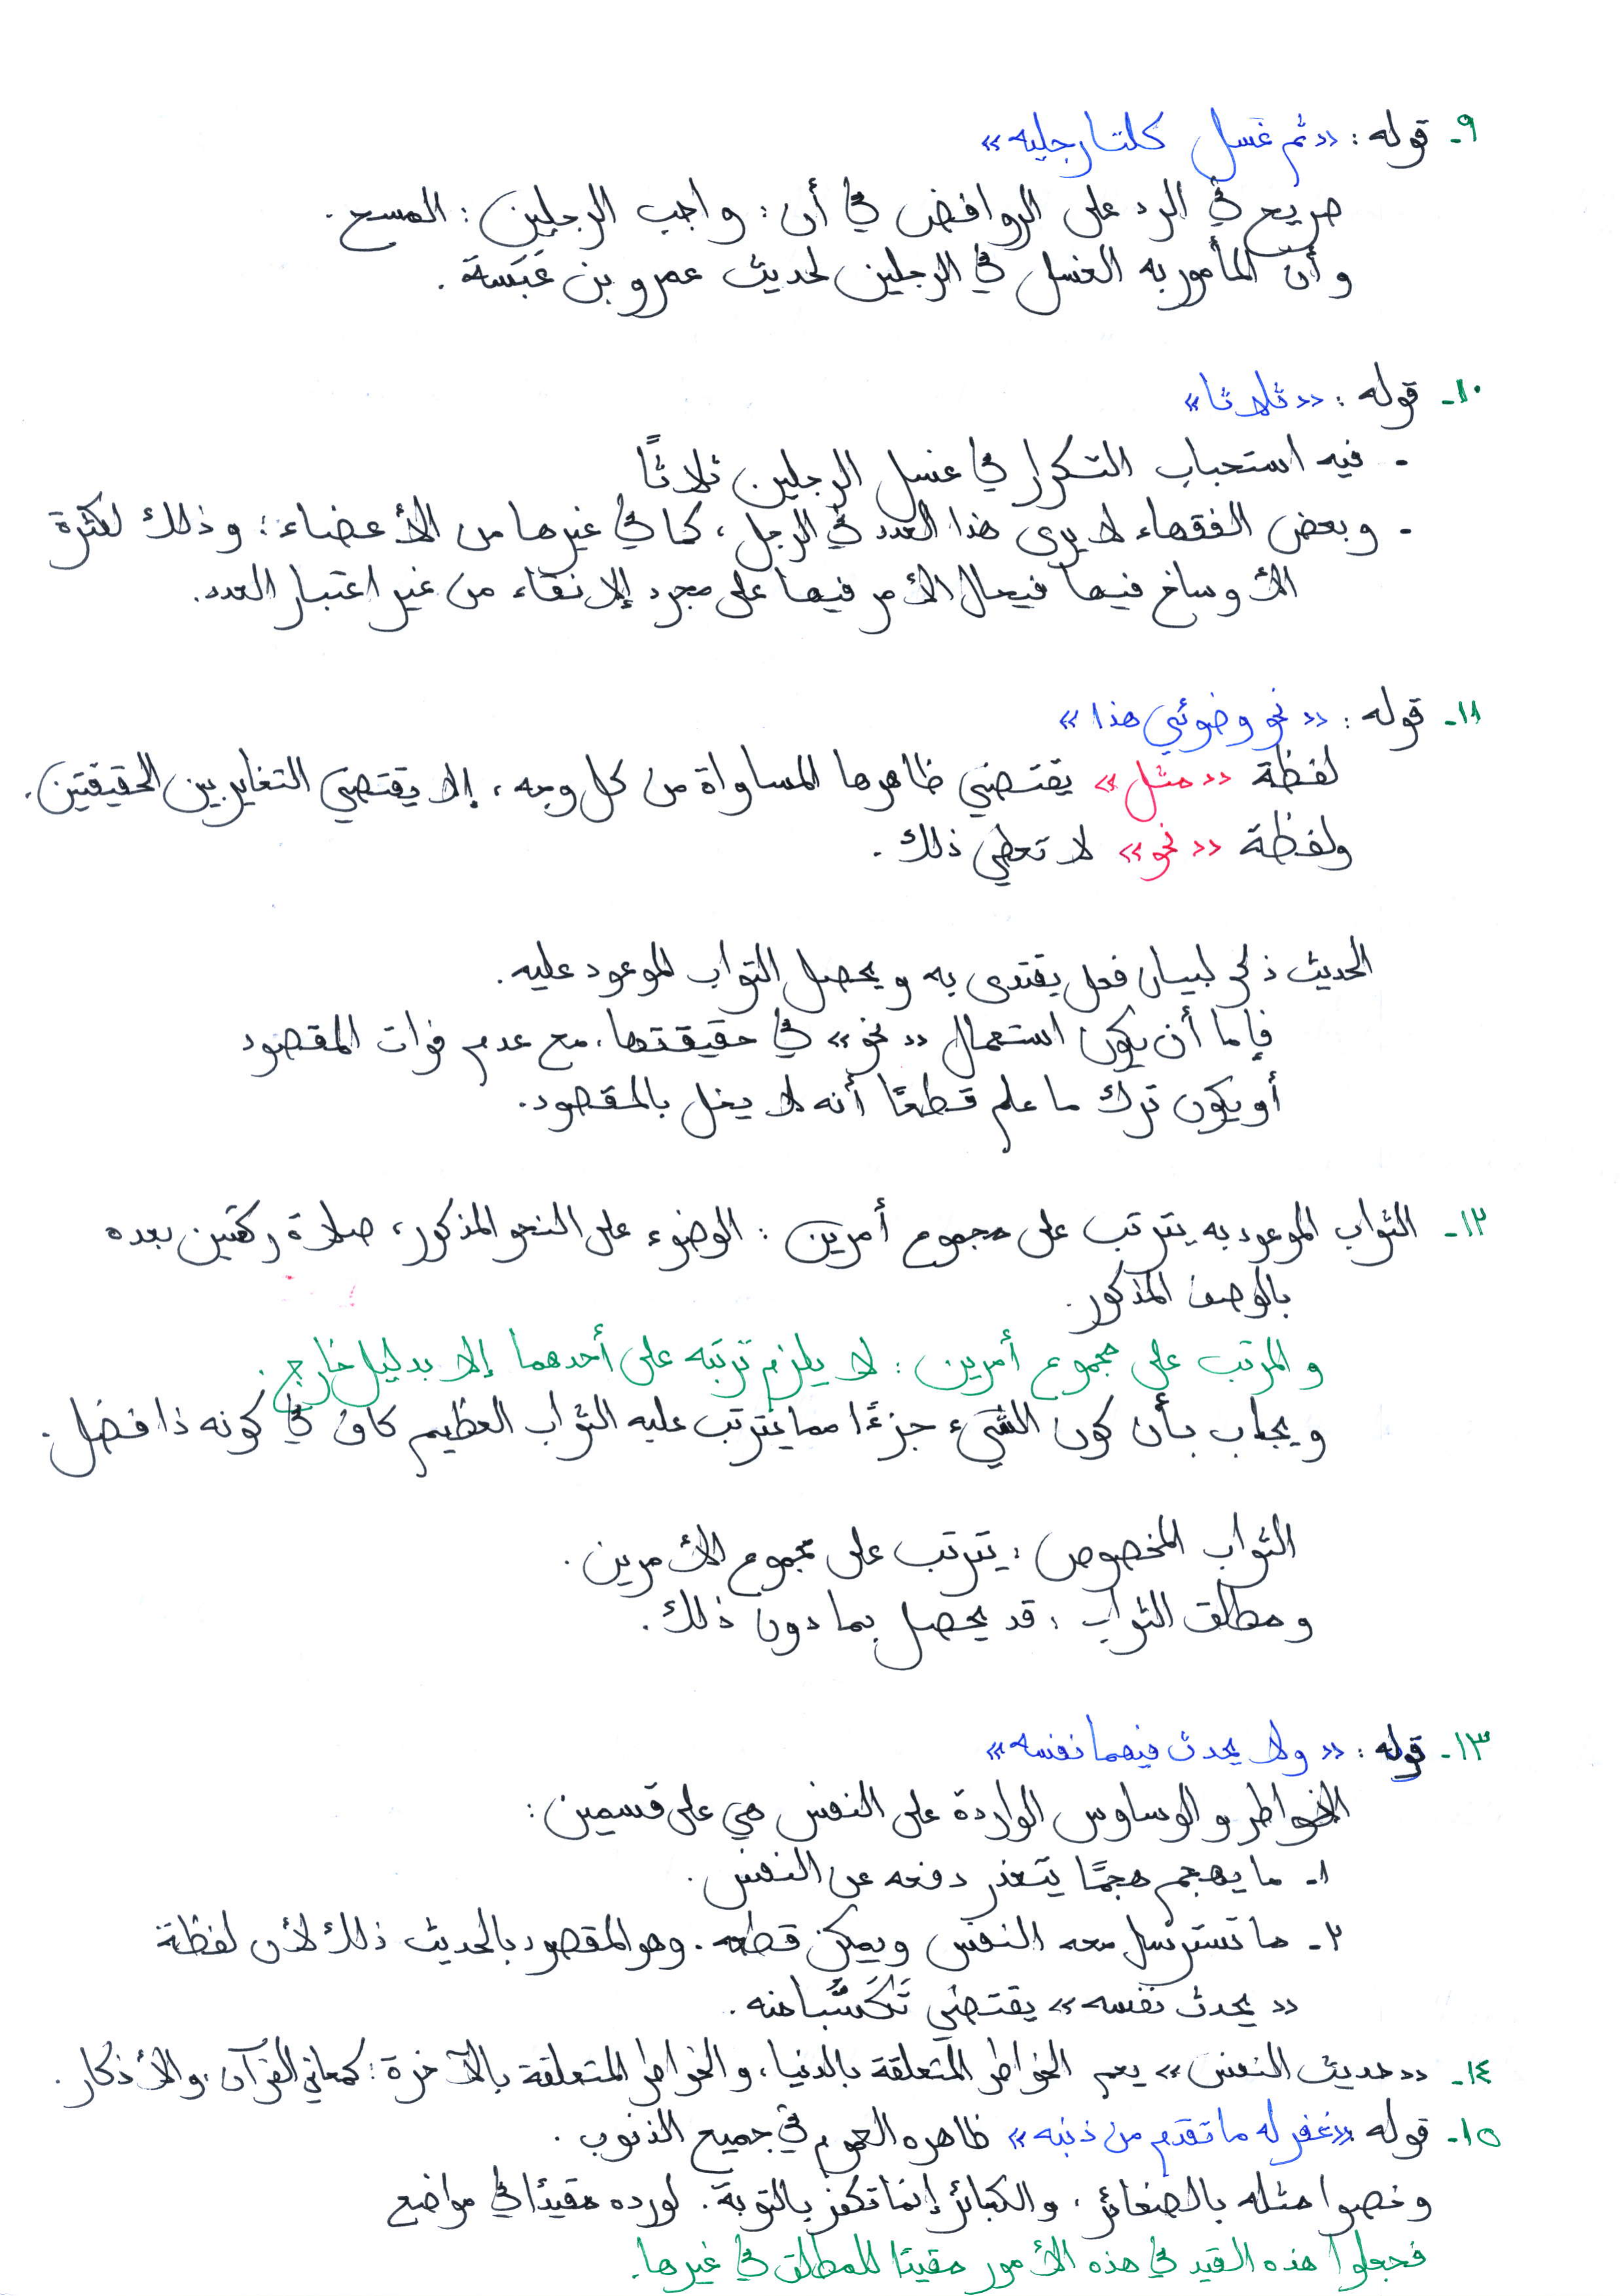 ٩- قوله: «ثم غسل كلتا رجليه»
صريح في الرد على الروافض في أن: واجب الرجلين: المسح.
وأن المأمور به الغسل في الرجلين لحديث عمرو بن عَبَسَة.
١٠- قوله: «ثلاثا»
- فيه استحباب التكرار في غسل الرجلين ثلاثًا
- وبعض الفقهاء لا يرى هذا العدد في الرجل، كما في غيرها من الأعضاء؛ وذلك لكثرة
الأوساخ فيها فيحال الأمر فيها على مجرد الإنقاء من غير اعتبار العدد.
١١- قوله: «نحو وضوئي هذا»
لفظة «مثل» يقتضي ظاهرها المساواة من كل وجه، إلا يقتضي التغاير بين الحقيقتين.
ولفظة «نحو» لا تعطي ذلك.
الحديث ذكر لبيان فعل يقتدى به ويحصل الثواب الموعود عليه.
فإما أن يكون استعمال «نحو» في حقيقتها، مع عدم فوات المقصود
أو يكون ترك ما علم قطعًا أنه لا يخل بالمقصود.
١٢- الثواب الموعود به يترتب على مجموع أمرين: الوضوء على النحو المذكور، صلاة ركعتين بعده
بالوصف المذكور.
والمرتب على مجموع أمرين: لا يلزم ترتبه على أحدهما إلا بدليل خارج.
ويجاب بأن كون الشيء جزءًا مما يترتب عليه الثواب العظيم كاف في كونه ذا فضل.
الثواب المخصوص: يترتب على مجموع الأمرين.
ومطلق الثواب: قد يحصل بما دون ذلك.
١٣- قوله: «ولا يحدث فيهما نفسه»
الخواطر والوساوس الواردة على النفس هي على قسمين:
١- ما يهجم هجمًا يتعذر دفعه عن النفس.
٢- ما تسترسل معه النفس ويمكن قطعه. وهو المقصود بالحديث ذلك لأن لفظة
«يحدث نفسه» يقتضي تَكَسُّبا منه.
١٤- «حديث النفس» يعم الخواطر المتعلقة بالدنيا، والخواطر المتعلقة بالآخرة: كمعاني القرآن، والأذكار.
١٥- قوله «غفر له ما تقدم من ذنبه» ظاهره العموم في جميع الذنوب.
وخصوا مثله بالصغائر، والكبائر إنما تكفر بالتوبة. لورده مقيدًا في مواضع
فجعلوا هذه القيد في هذه الأمور مقيدًا للمطلق في غيرها.